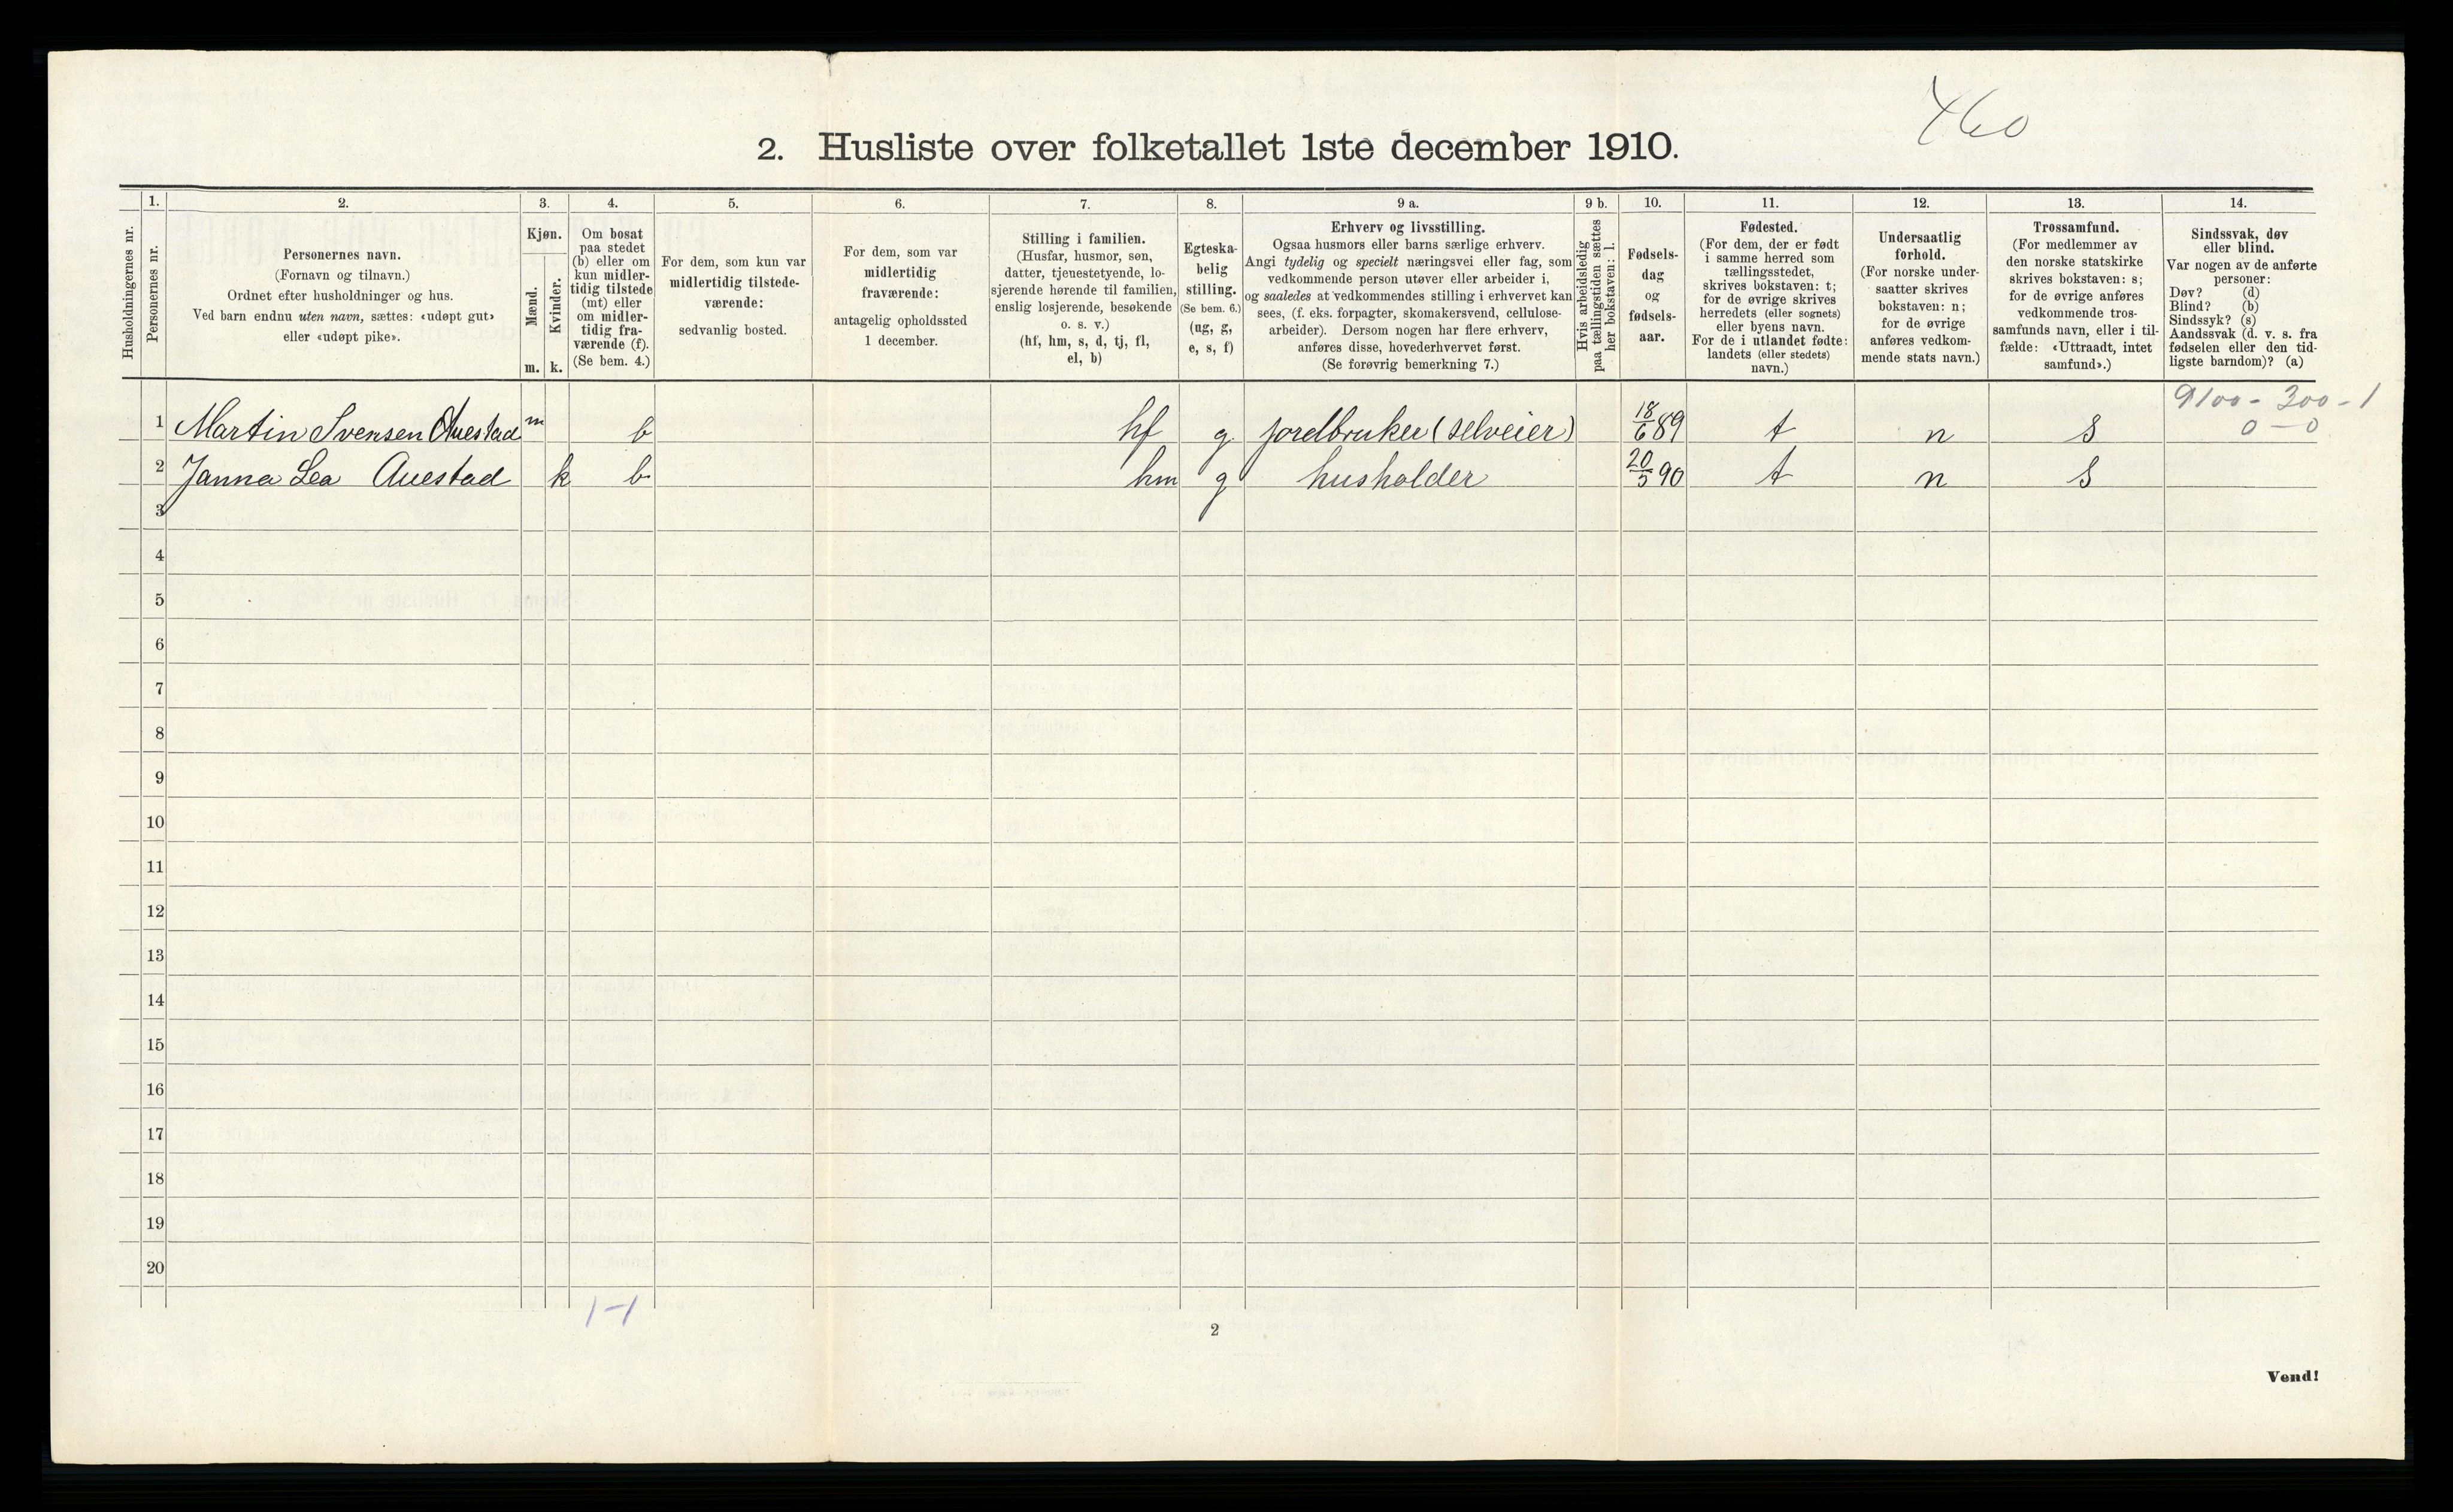 460
2. Husliste over folketallet 1ste december 1910.
Husholdningernes nr.
1.
Personernes nr.
2.
Personernes navn.
(Fornavn og tilnavn.)
Ordnet efter husholdninger og hus.
Ved barn endnu uten navn, sættes: «udøpt gut»
eller «udøpt pike».
3.
Kjøn.
Mænd.
Kvinder.
m. k.
4.
Om bosat
paa stedet
(b) eller om
kun midler-
tidig tilstede
(mt) eller
om midler-
tidig fra-
værende (f).
(Se bem. 4.)
5.
For dem, som kun var
midlertidig tilstede-
værende:
sedvanlig bosted.
6.
For dem, som var
midlertidig
fraværende:
antagelig opholdssted
1 december.
7.
Stilling i familien.
(Husfar, husmor, søn,
datter, tjenestetyende, lo-
sjerende hørende til familien,
enslig losjerende, besøkende
o. s. v.)
(hf, hm, s, d, tj, fl,
el, b)
8.
Egteska-
belig
stilling.
(Se bem. 6.)
(ug, g,
e, s, f)
9 a.
Erhverv og livsstilling.
Ogsaa husmors eller barns særlige erhverv.
Angi tydelig og specielt næringsvei eller fag, som
vedkommende person utøver eller arbeider i,
og saaledes at vedkommendes stilling i erhvervet kan
sees, (f. eks. forpagter, skomakersvend, cellulose-
arbeider). Dersom nogen har flere erhverv,
anføres disse, hovederhvervet først.
(Se forøvrig bemerkning 7.)
9 b.
Hvis arbeidsledig
paa tællingstiden sættes
her bokstaven: l.
10.
Fødsels-
dag
og
fødsels-
aar.
11.
Fødested.
(For dem, der er født
i samme herred som
tællingsstedet,
skrives bokstaven: t;
for de øvrige skrives
herredets (eller sognets)
eller byens navn.
For de i utlandet fødte:
landets (eller stedets)
navn.)
12.
Undersaatlig
forhold.
(For norske under-
saatter skrives
bokstaven: n;
for de øvrige
anføres vedkom-
mende stats navn.)
13.
Trossamfund.
(For medlemmer av
den norske statskirke
skrives bokstaven: s;
for de øvrige anføres
vedkommende tros-
samfunds navn, eller i til-
fælde: «Uttraadt, intet
samfund».)
14.
Sindssvak, døv
eller blind.
Var nogen av de anførte
personer:
Døv? (d)
Blind? (b)
Sindssyk? (s)
Aandssvak (d. v. s. fra
fødselen eller den tid-
ligste barndom)? (a)
9100 - 300 - 1
0 - 0
1 Martin Svensen Auestad m b hf g jordbruker (selveier) 18/6 89 t n s
2 Janna Lea Auestad k b hm g husholder 20/5 90 t n s
3
4
5
6
7
8
9
10
11
12
13
14
15
16
17
18
19
20
1-1
2
Vend!